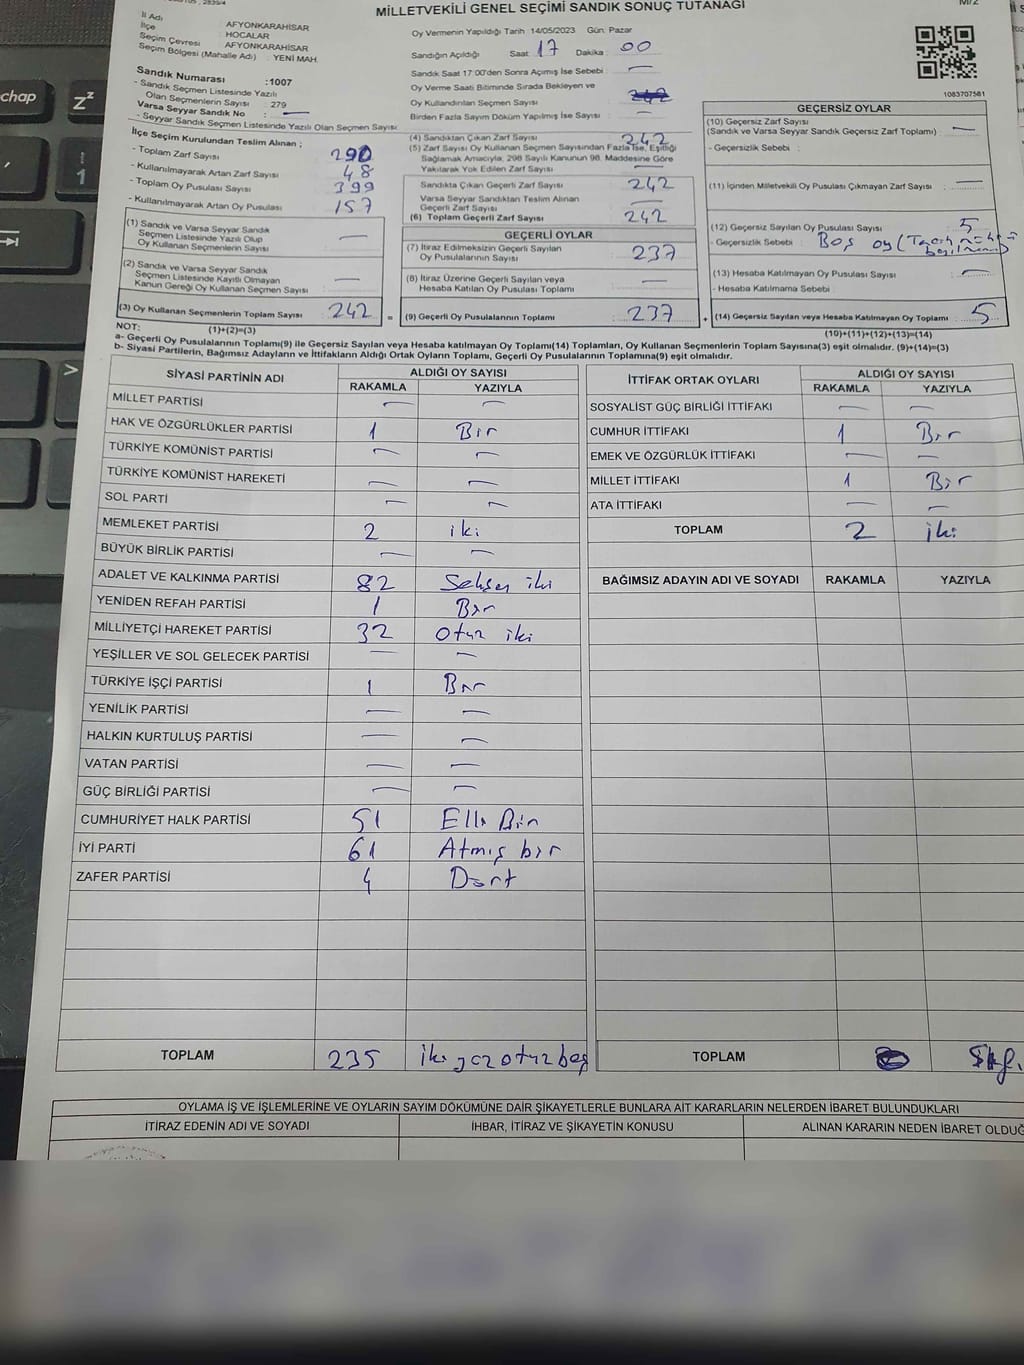 MİLLETVEKİLİ GENEL SEÇİMİ SANDIK SONUÇ TUTANAĞI
İl Adı AFYONKARAHİSAR
İlçe HOCALAR
Seçim Çevresi AFYONKARAHİSAR
Seçim Bölgesi (Mahalle Adı) : YENİ MAH.
Sandık Numarası :1007
- Sandık Seçmen Listesinde Yazılı
Olan Seçmenlerin Sayısı : 279
Varsa Seyyar Sandık No : —
- Seyyar Sandık Seçmen Listesinde Yazılı Olan Seçmen Sayısı:
Oy Vermenin Yapıldığı Tarih :14/05/2023 Gün: Pazar
Sandığın Açıldığı Saat: 17 Dakika : 00
Sandık Saat 17:00'den Sonra Açımış İse Sebebi : —
Oy Verme Saati Bitiminde Sırada Bekleyen ve
Oy Kullandırılan Seçmen Sayısı
Birden Fazla Sayım Döküm Yapılmış İse Sayısı : —
1083707581
İlçe Seçim Kurulundan Teslim Alınan ;
- Toplam Zarf Sayısı 290
- Kullanılmayarak Artan Zarf Sayısı 48
- Toplam Oy Pusulası Sayısı 399
- Kullanılmayarak Artan Oy Pusulası 157
(1) Sandık ve Varsa Seyyar Sandık
Seçmen Listesinde Yazılı Olup
Oy Kullanan Seçmenlerin Sayısı —
(2) Sandık ve Varsa Seyyar Sandık
Seçmen Listesinde Kayıtlı Olmayan
Kanun Gereği Oy Kullanan Seçmen Sayısı —
(3) Oy Kullanan Seçmenlerin Toplam Sayısı : 242 =
(4) Sandıktan Çıkan Zarf Sayısı 242
(5) Zarf Sayısı Oy Kullanan Seçmen Sayısından Fazla İse, Eşitliği
Sağlamak Amacıyla, 298 Sayılı Kanunun 98. Maddesine Göre
Yakılarak Yok Edilen Zarf Sayısı —
Sandıkta Çıkan Geçerli Zarf Sayısı 242
Varsa Seyyar Sandıktan Teslim Alınan
Geçerli Zarf Sayısı —
(6) Toplam Geçerli Zarf Sayısı 242
GEÇERLİ OYLAR
(7) İtiraz Edilmeksizin Geçerli Sayılan
Oy Pusulalarının Sayısı 237
(8) İtiraz Üzerine Geçerli Sayılan veya
Hesaba Katılan Oy Pusulası Toplamı —
(9) Geçerli Oy Pusulalarının Toplamı : 237 +
GEÇERSİZ OYLAR
(10) Geçersiz Zarf Sayısı
(Sandık ve Varsa Seyyar Sandık Geçersiz Zarf Toplamı) : —
- Geçersizlik Sebebi :
(11) İçinden Milletvekili Oy Pusulası Çıkmayan Zarf Sayısı : —
(12) Geçersiz Sayılan Oy Pusulası Sayısı : 5
- Geçersizlik Sebebi : Boş oy
(13) Hesaba Katılmayan Oy Pusulası Sayısı : —
- Hesaba Katılmama Sebebi :
(14) Geçersiz Sayılan veya Hesaba Katılmayan Oy Toplamı : 5
NOT: (1)+(2)=(3) (10)+(11)+(12)+(13)=(14)
a- Geçerli Oy Pusulalarının Toplamı(9) ile Geçersiz Sayılan veya Hesaba katılmayan Oy Toplamı(14) Toplamları, Oy Kullanan Seçmenlerin Toplam Sayısına(3) eşit olmalıdır. (9)+(14)=(3)
b- Siyasi Partilerin, Bağımsız Adayların ve İttifakların Aldığı Ortak Oyların Toplamı, Geçerli Oy Pusulalarının Toplamına(9) eşit olmalıdır.
SİYASİ PARTİNİN ADI ALDIĞI OY SAYISI
RAKAMLA YAZIYLA
MİLLET PARTİSİ — —
HAK VE ÖZGÜRLÜKLER PARTİSİ 1 Bir
TÜRKİYE KOMÜNİST PARTİSİ — —
TÜRKİYE KOMÜNİST HAREKETİ — —
SOL PARTİ — —
MEMLEKET PARTİSİ 2 iki
BÜYÜK BİRLİK PARTİSİ — —
ADALET VE KALKINMA PARTİSİ 82 Seksen iki
YENİDEN REFAH PARTİSİ 1 Bir
MİLLİYETÇİ HAREKET PARTİSİ 32 Otuz iki
YEŞİLLER VE SOL GELECEK PARTİSİ — —
TÜRKİYE İŞÇİ PARTİSİ 1 Bir
YENİLİK PARTİSİ — —
HALKIN KURTULUŞ PARTİSİ — —
VATAN PARTİSİ — —
GÜÇ BİRLİĞİ PARTİSİ — —
CUMHURİYET HALK PARTİSİ 51 Elli Bir
İYİ PARTİ 61 Atmış bir
ZAFER PARTİSİ 4 Dört
TOPLAM 235 iki yüz otuz beş
İTTİFAK ORTAK OYLARI ALDIĞI OY SAYISI
RAKAMLA YAZIYLA
SOSYALİST GÜÇ BİRLİĞİ İTTİFAKI — —
CUMHUR İTTİFAKI 1 Bir
EMEK VE ÖZGÜRLÜK İTTİFAKI — —
MİLLET İTTİFAKI 1 Bir
ATA İTTİFAKI — —
TOPLAM 2 iki
BAĞIMSIZ ADAYIN ADI VE SOYADI RAKAMLA YAZIYLA
TOPLAM
OYLAMA İŞ VE İŞLEMLERİNE VE OYLARIN SAYIM DÖKÜMÜNE DAİR ŞİKAYETLERLE BUNLARA AİT KARARLARIN NELERDEN İBARET BULUNDUKLARI
İTİRAZ EDENİN ADI VE SOYADI İHBAR, İTİRAZ VE ŞİKAYETİN KONUSU ALINAN KARARIN NEDEN İBARET OLDUĞ